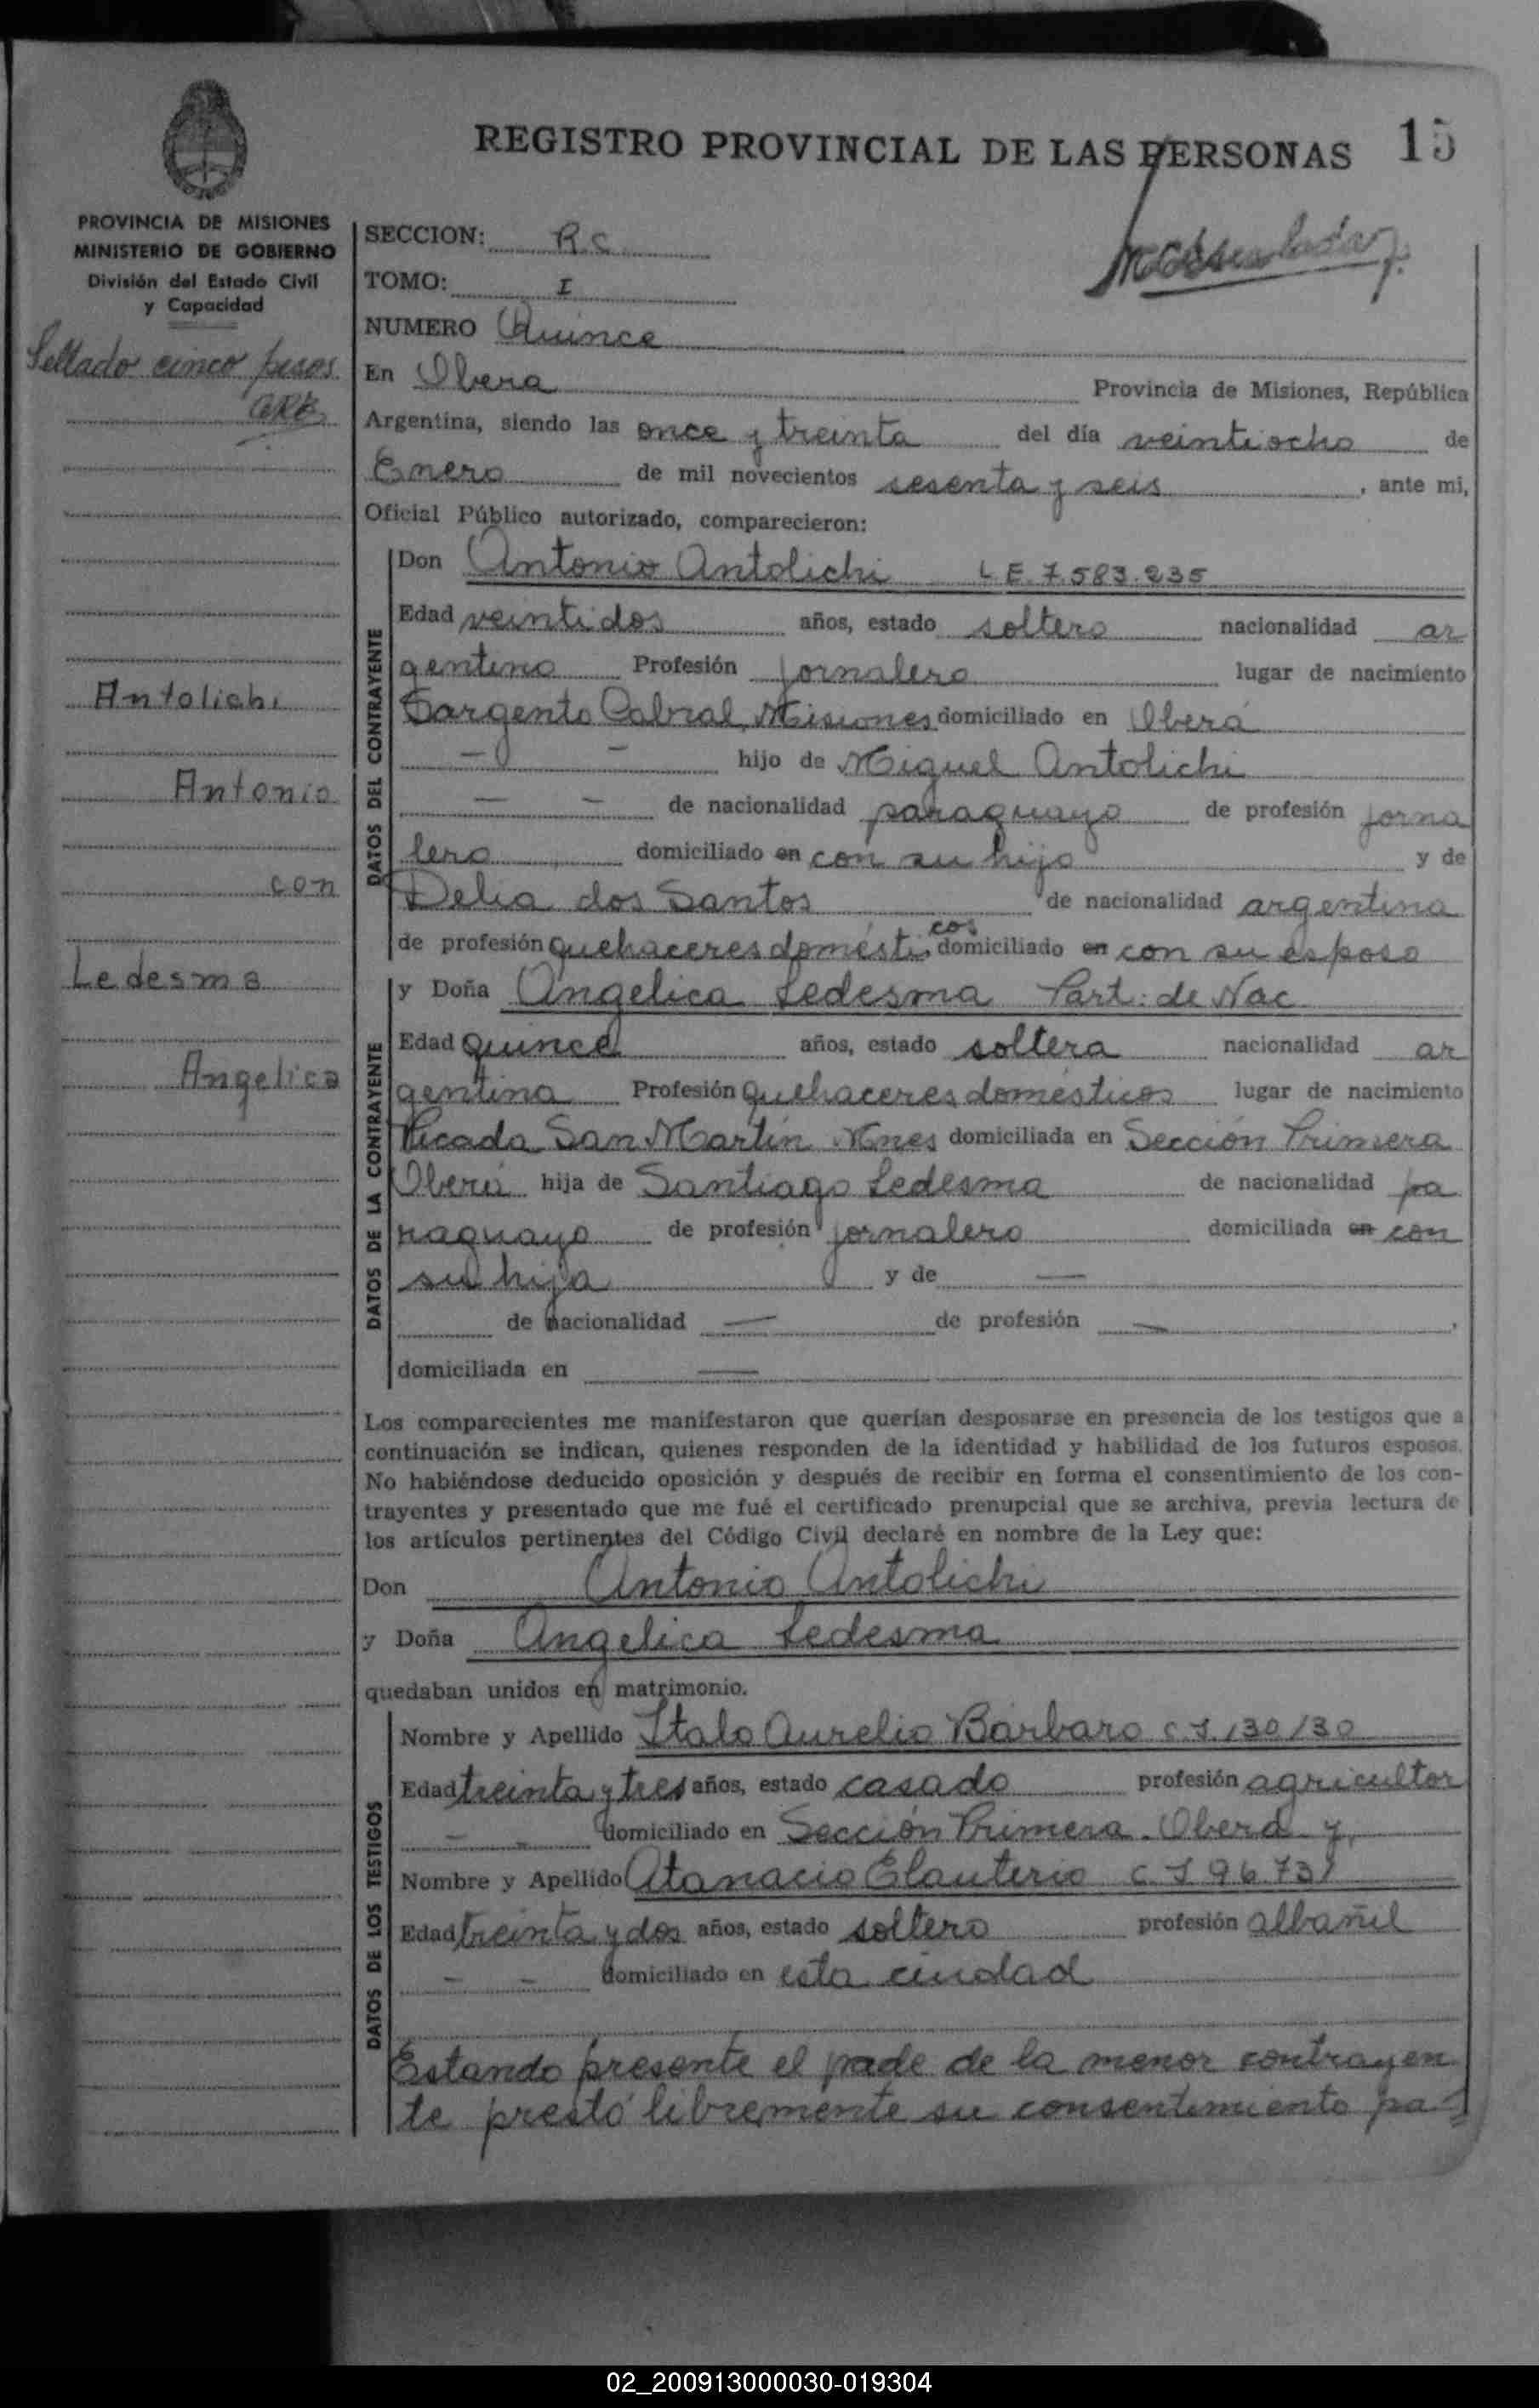 REGISTRO PROVINCIAL DE LAS PERSONAS 15
PROVINCIA DE MISIONES
MINISTERIO DE GOBIERNO
División del Estado Civil
y Capacidad
Sellado cinco pesos
Antolichi
Antonio
con
Ledesma
Angelica
SECCION: R.C.
TOMO: I
NUMERO Quince
En Obera Provincia de Misiones, República
Argentina, siendo las once y treinta del día veintiocho de
Enero de mil novecientos sesenta y seis, ante mi,
Oficial Público autorizado, comparecieron:
DATOS DEL CONTRAYENTE
Don Antonio Antolichi L.E. 7.583.235
Edad veintidos años, estado soltero nacionalidad ar
gentino Profesión jornalero lugar de nacimiento
Sargento Cabral, Misiones domiciliado en Oberá
- - hijo de Miguel Antolichi
- - de nacionalidad paraguayo de profesión jorna
lero domiciliado en con su hijo y de
Delia dos Santos de nacionalidad argentina
de profesión quehaceres domésticos domiciliado en con su esposo
DATOS DE LA CONTRAYENTE
y Doña Angelica Ledesma Part: de Nac
Edad quince años, estado soltera nacionalidad ar
gentina Profesión quehaceres domésticos lugar de nacimiento
Picada San Martín Mnes domiciliada en Sección Primera
Oberá hija de Santiago Ledesma de nacionalidad pa
raguayo de profesión jornalero domiciliada en con
su hija y de —
de nacionalidad — de profesión —,
domiciliada en —
Los comparecientes me manifestaron que querían desposarse en presencia de los testigos que a
continuación se indican, quienes responden de la identidad y habilidad de los futuros esposos.
No habiéndose deducido oposición y después de recibir en forma el consentimiento de los con-
trayentes y presentado que me fué el certificado prenupcial que se archiva, previa lectura de
los artículos pertinentes del Código Civil declaré en nombre de la Ley que:
Don Antonio Antolichi
y Doña Angelica Ledesma
quedaban unidos en matrimonio.
DATOS DE LOS TESTIGOS
Nombre y Apellido Italo Aurelio Bárbaro C.I. 130130
Edad treinta y tres años, estado casado profesión agricultor
- - domiciliado en Sección Primera. Oberá y,
Nombre y Apellido Atanacio Elauterio C.I 96.731
Edad treinta y dos años, estado soltero profesión albañil
- - domiciliado en esta ciudad
Estando presente el pade de la menor contrayen
te prestó libremente su consentimiento pa=
02_200913000030-019304